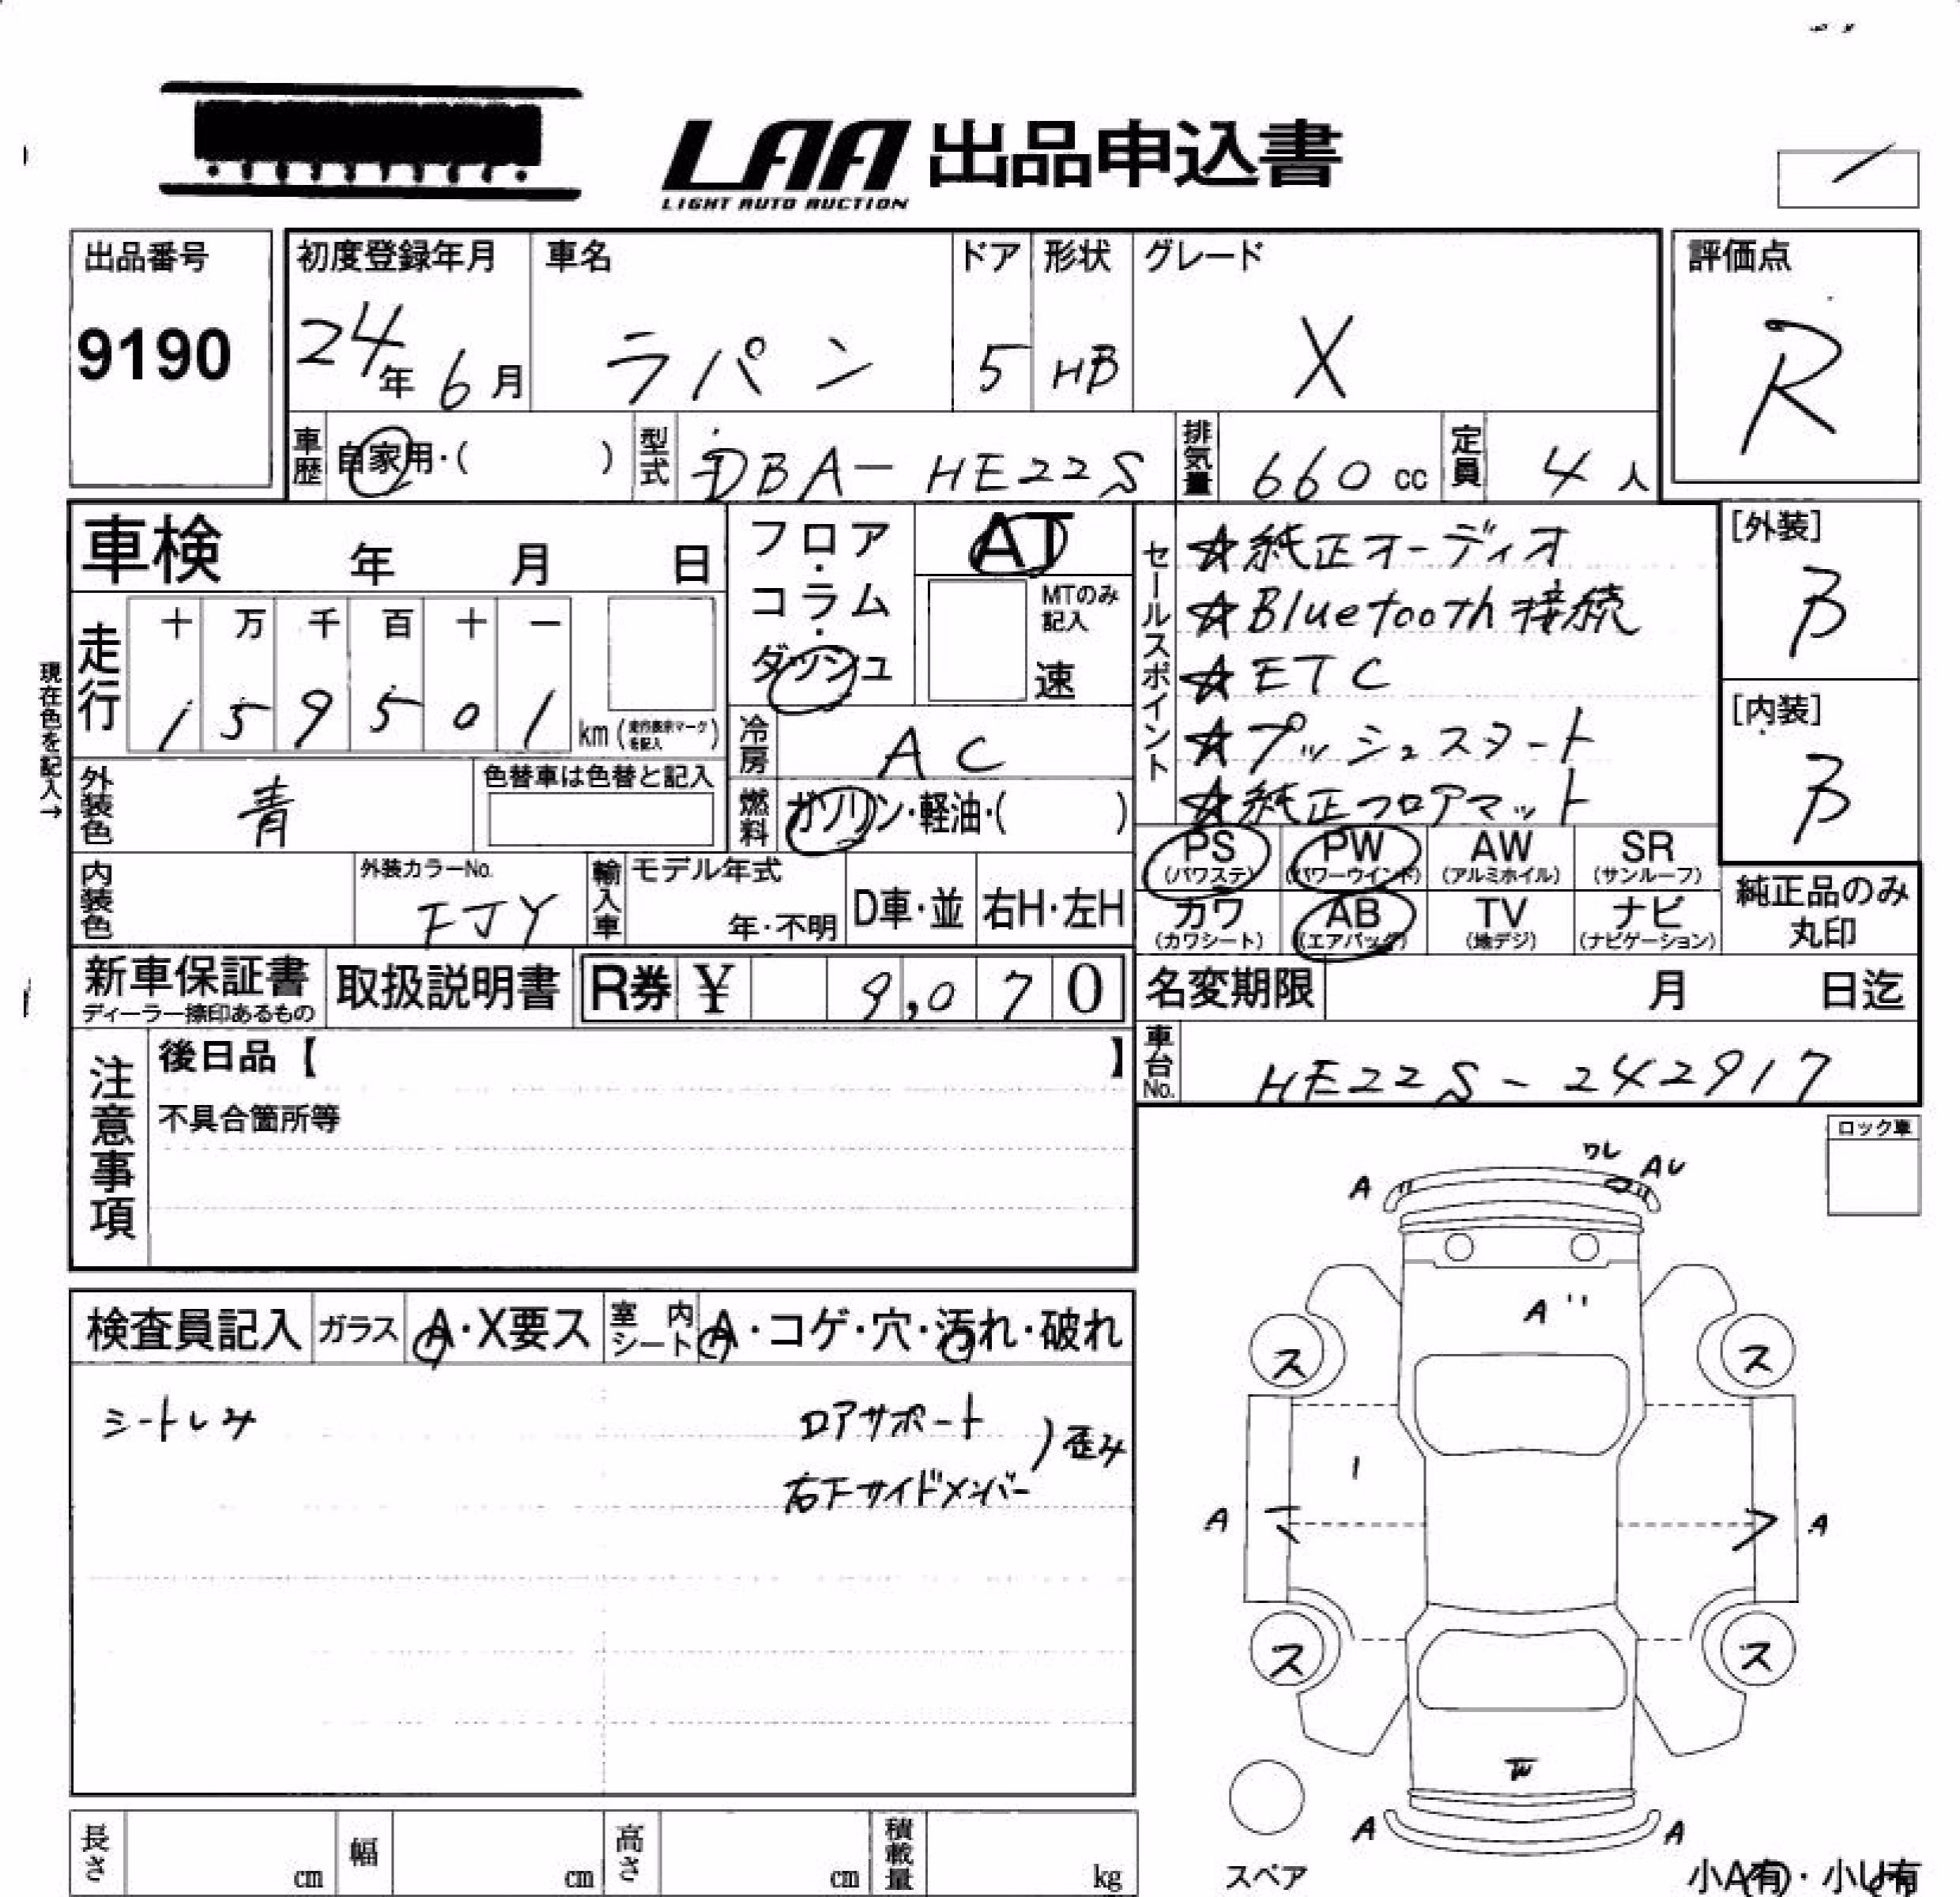 LAA 出品申込書
LIGHT AUTO AUCTION
出品番号
9190
初度登録年月
24年6月
車名
ラパン
ドア
5
形状
HB
グレード
X
評価点
R
車歴 自家用・( )
型式 DBA-HE22S
排気量 660cc
定員 4人
車検 年 月 日
走行
十 万 千 百 十 一
1 5 9 5 0 1 km(
現在色を記入→
外装色 青
色替車は色替と記入
内装色
外装カラーNo.
FJY
フロア・コラム・ダッシュ
AT
MTのみ記入
速
冷房 AC
燃料 ガソリン・軽油・( )
輸入車
モデル年式
年・不明
D車・並
右H・左H
セールスポイント
☆純正オーディオ
☆Bluetooth接続
☆ETC
☆プッシュスタート
☆純正フロアマット
[外装]
B
[内装]
B
PS (パワステ)
PW (パワーウインド)
AW (アルミホイル)
SR (サンルーフ)
カワ (カワシート)
AB (エアバッグ)
TV (地デジ)
ナビ (ナビゲーション)
純正品のみ
丸印
新車保証書
ディーラー捺印あるもの
取扱説明書
R券 ¥ 9,070
名変期限 月 日迄
車台No. HE22S-242917
注意事項
後日品【 】
不具合箇所等
ロック車
検査員記入
ガラス A・X要ス
室内シート A・コゲ・穴・汚れ・破れ
シートシミ
ロアサポート
右下サイドメンバー
)歪み
ワレ
AU
A
A
ス
ス
A
A
ス
ス
A
A
スペア
小A有・小U有
長さ cm
幅 cm
高さ cm
積載量 kg